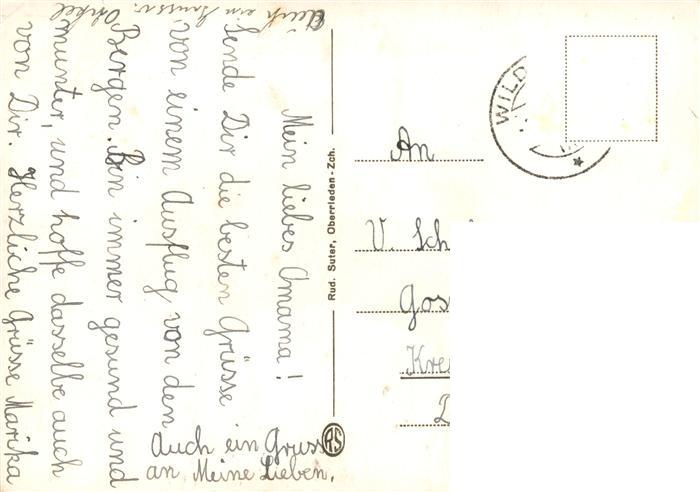 Mein liebes Omama!
Sende Dir die besten Grüsse
von einem Ausflug von den
Bergen. Bin immer gesund und
munter, und hoffe dasselbe auch
von Dir. Herzliche Grüsse Marika
Auch ein Gruss
an Meine Lieben.
Auch ein Gruss v. Onkel
Rud. Suter, Oberrieden - Zch.
RS
WILD
An
V. Sch
Gos
Kre